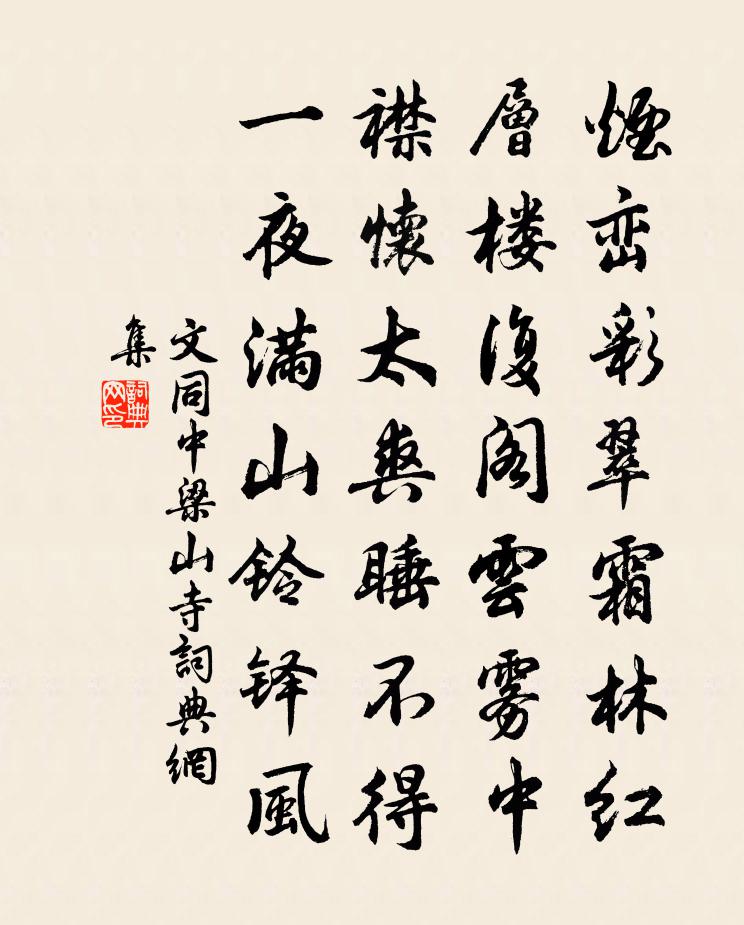 煙峦彩翠霜林紅
層楼復阁雲雾中
襟懷太爽睡不得
一夜满山铃铎風
文同中梁山寺詞典網
集
詞典
网印